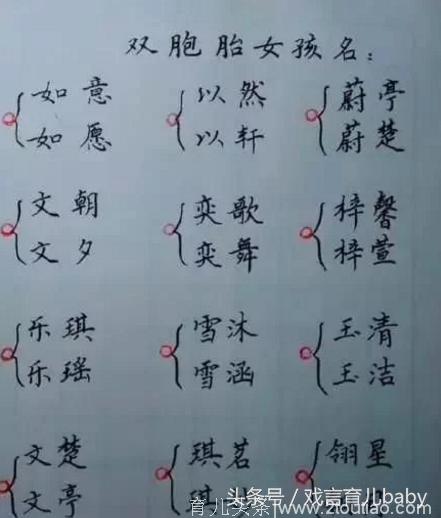 双胞胎女孩名：
如意 以然 蔚亭
如愿 以轩 蔚楚
文朝 奕歌 梓馨
文夕 奕舞 梓萱
乐琪 雪沐 玉清
乐瑶 雪涵 玉洁
文楚 琪茗 翎星
文亭 琪
头条号／戏言育儿baby
育儿头条 www.zioutiao.com